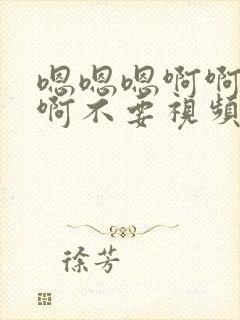 嗯嗯嗯啊啊
啊不要視頻
徐芳